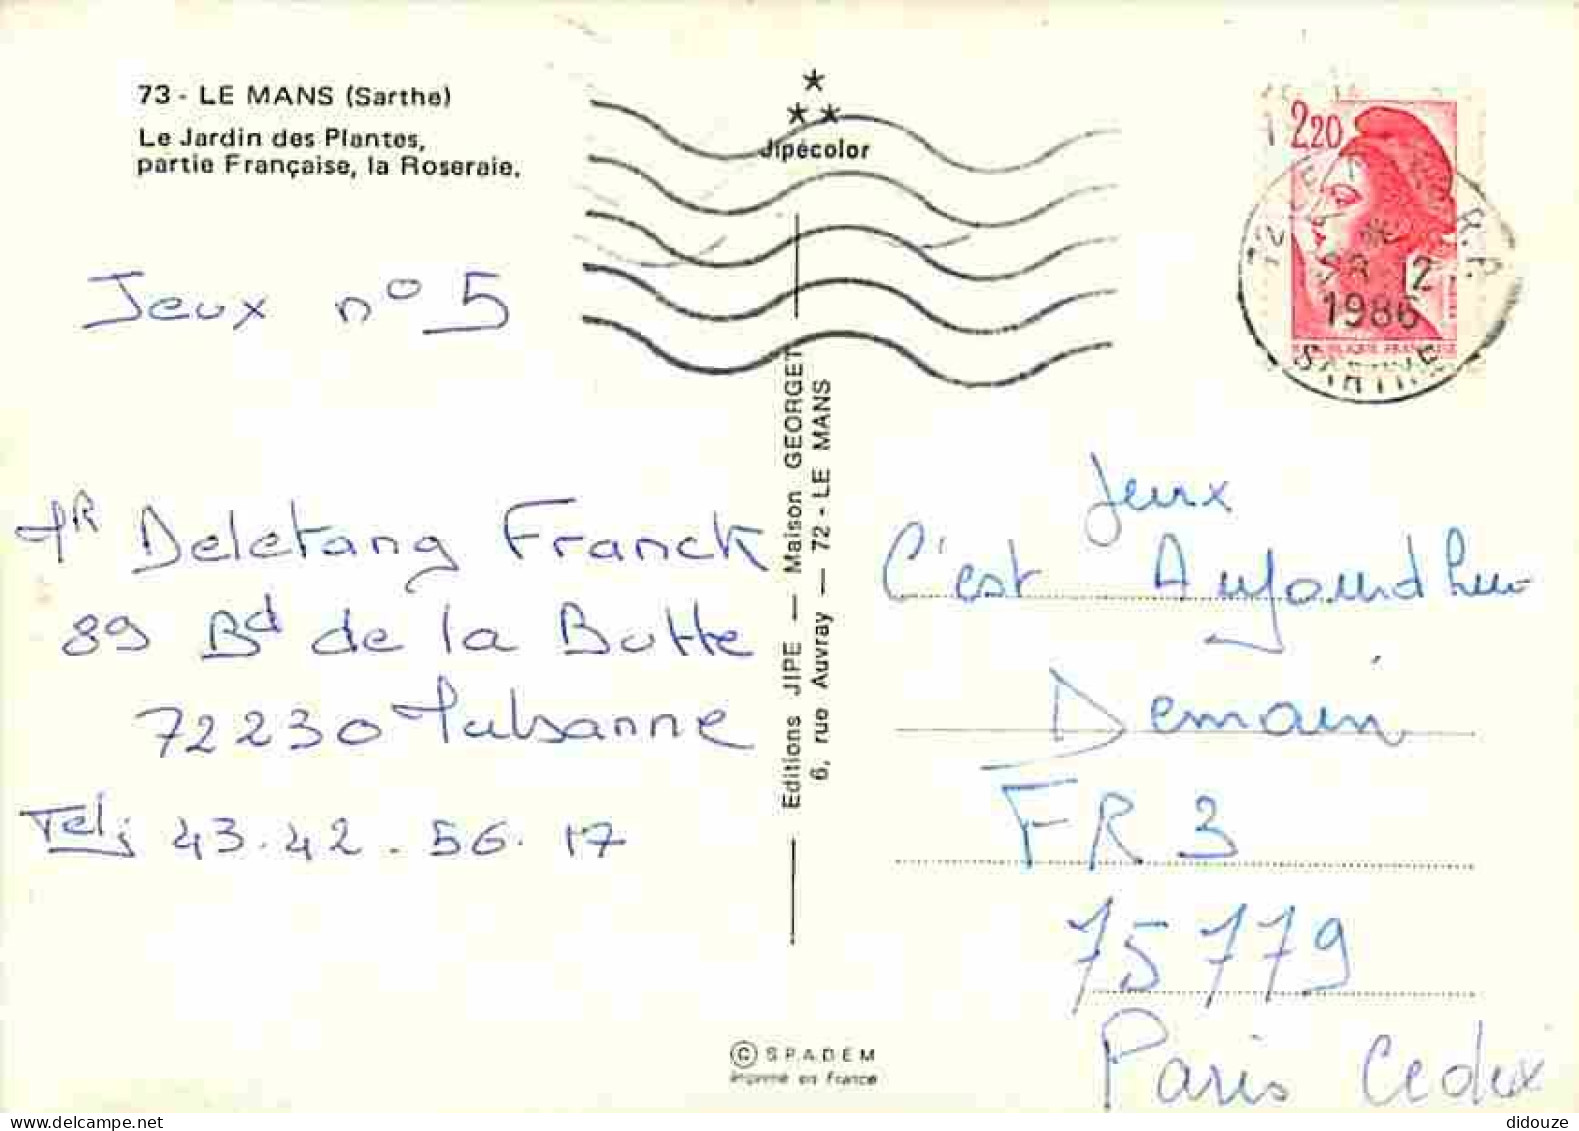 73 - LE MANS (Sarthe)
Le Jardin des Plantes,
partie Française, la Roseraie.
Jipécolor
Jeux n° 5
Mr Deletang Franck
89 Bd de la Butte
72230 Mulsanne
Tel; 43.42.56.17
Editions JIPE — Maison GEORGET
6, rue Auvray — 72 - LE MANS
© S.P.A.D.E.M
Imprimé en France
2,20
12
1986
SARTHE
REPUBLIQUE FRANCAISE
Jeux
C'est Aujourd'hui
Demain
FR 3
75779
Paris Cedex
didouze